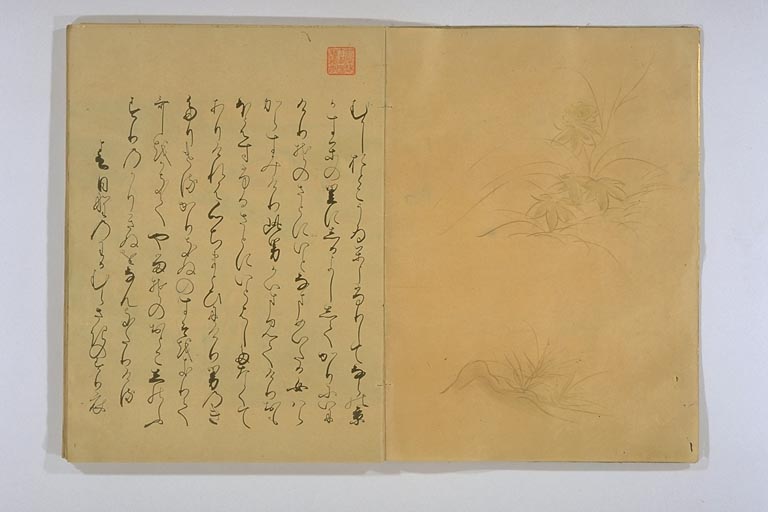 むかしおとこうゐかうふりしてならの京
かすかの里にしるよししてかりにいに
けりそのさとにいとなまめいたる女はら
からすみけり此男かいま見てけりおも
ほえすふるさとにいとはしたなくて
ありけれは心ちまとひにけり男のき
たりけるかりきぬのすそをきりて
哥をかきてやるそのおとこしのふ
すりのかりきぬをなんきたりける
春日野のわかむらさきのすり衣